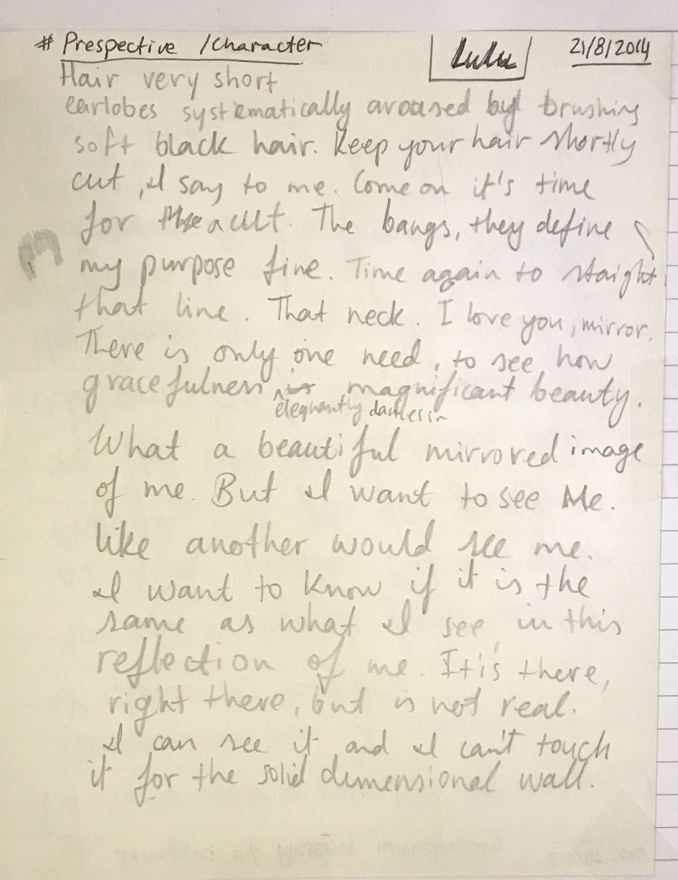 # Prespective / Character
Lulu
21/8/2014
Hair very short
earlobes systematically aroused by brushing
soft black hair. Keep your hair shortly
cut, I say to me. Come on it's time
for a cut. The bangs, they define
my purpose fine. Time again to staight
that line. That neck. I love you, mirror.
There is only one need, to see how
gracefulness magnificant beauty.
elegnantly
What a beautiful mirrored image
of me. But I want to see Me.
like another would see me.
I want to know if it is the
same as what I see, in this
reflection of me. It is there,
right there, but is not real.
I can see it and I can't touch
it for the solid dimensional wall.